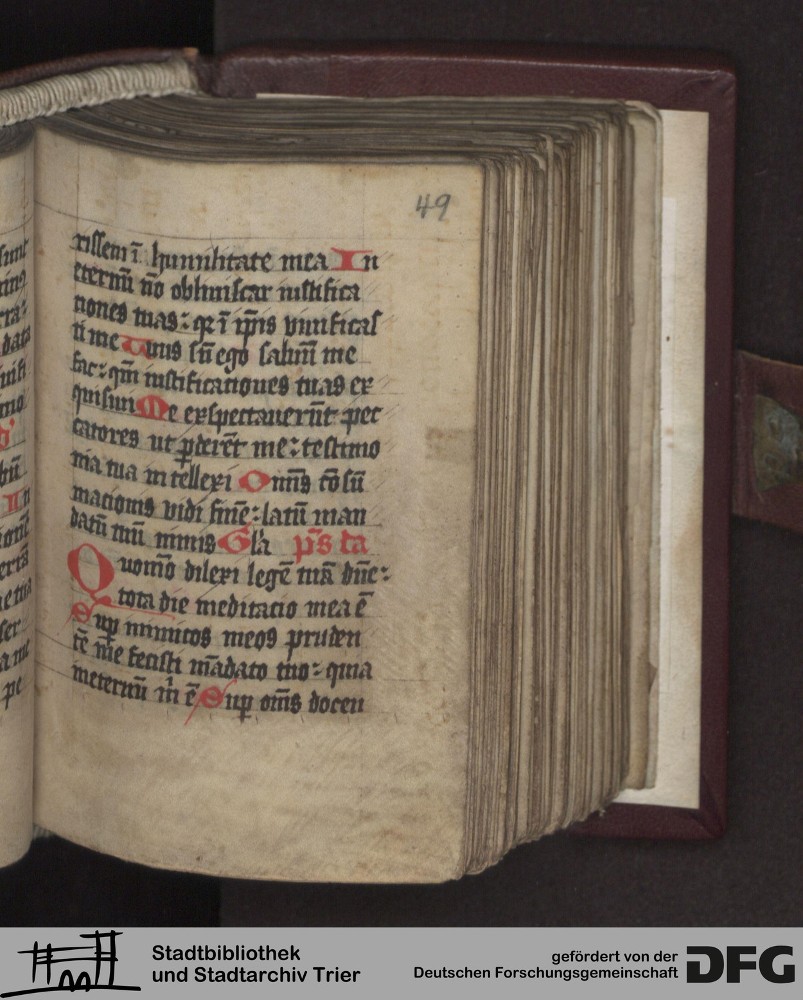 49
rissem ī humilitate mea In
eternū nō obliuiscar iustifica
tiones tuas: qꝛ ī ip̄is uiuificas
ti me Tuus sū ego saluū me
fac: qm̄ iustificationes tuas ex
quisiui Me exspectauerūt pec
catores ut ꝑderēt me: testimo
nia tua intellexi Om̄is cōsū
mationis uidi finē: latū man
datū tuū nimis Gl'a ps̄ da
Quomō dilexi legē tuā dn̄e:
tota die meditatio mea ē
Suꝑ inimicos meos pruden
tē me fecisti mādato tuo: quia
ineternū m̄ ē Suꝑ om̄s docen
sunt
data
mo
bū
In
ser
a me
pe
Stadtbibliothek
und Stadtarchiv Trier
gefördert von der
Deutschen Forschungsgemeinschaft
DFG